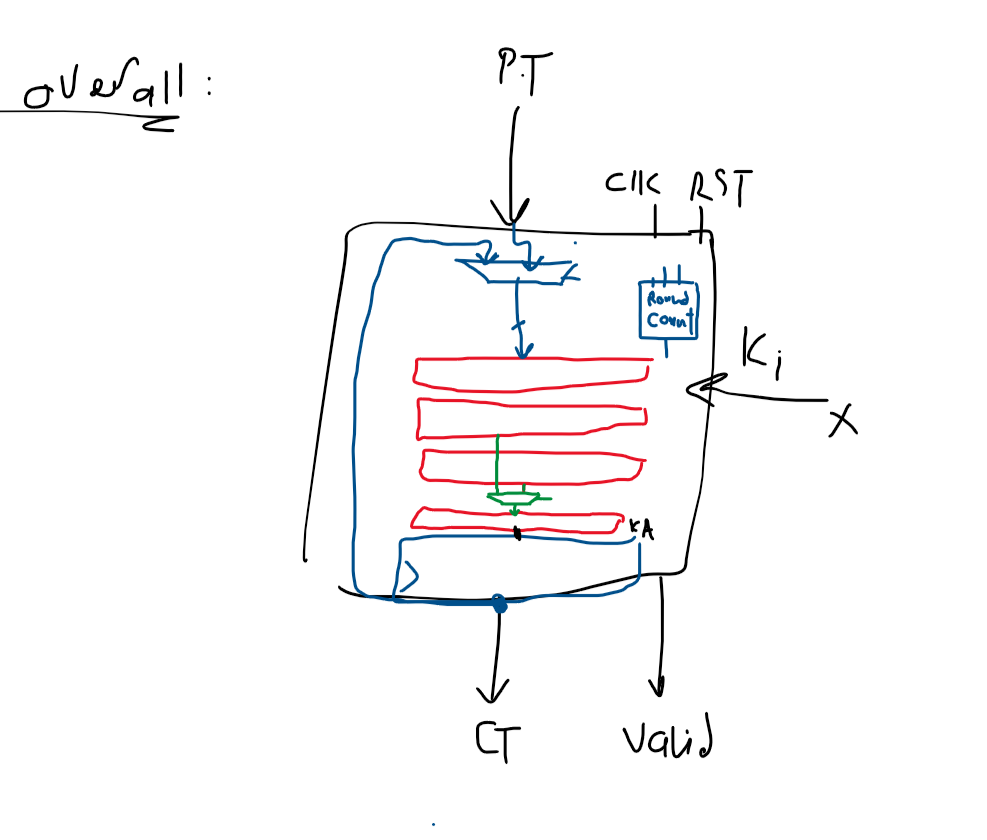 overall:
P.T
Clk RST
Round
Count
Ki
X
KA
CT
Valid